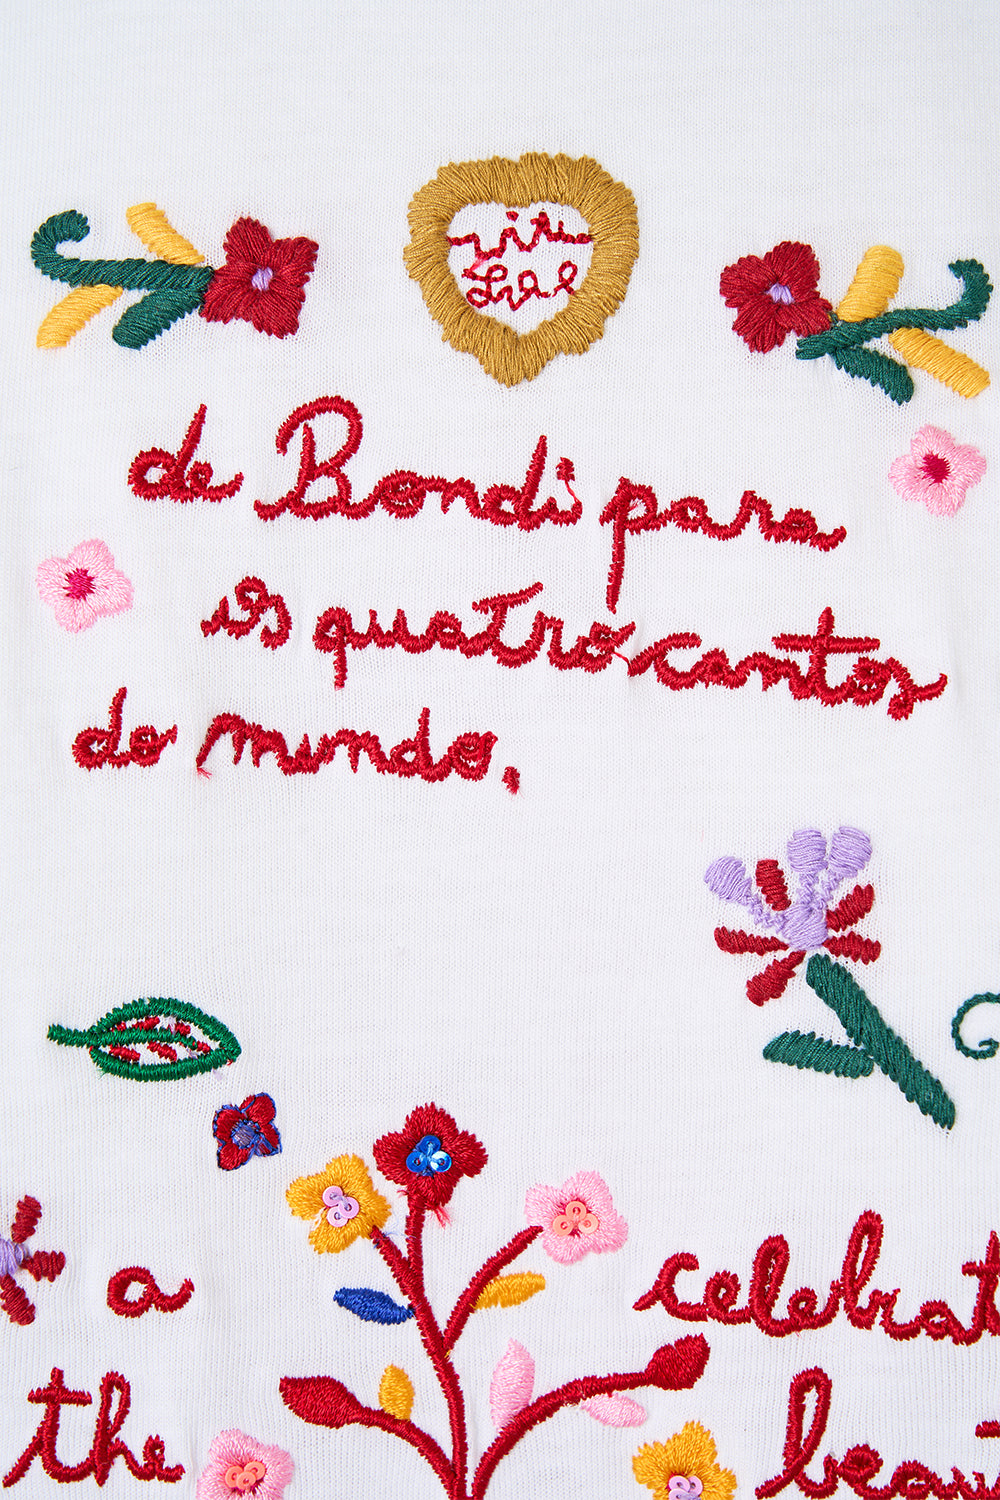 de Bondi para
os quatro cantos
do mundo,
a celebrat
the beau